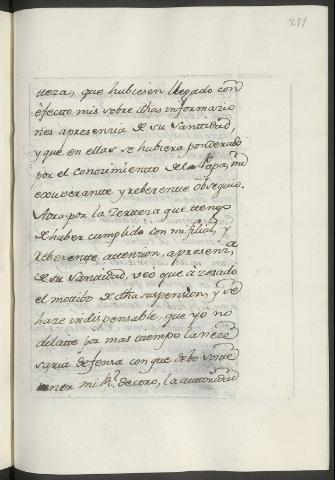 271
tteza, que hubiesen llegado con
efecto, mis sobre dhas informacio
nes apresencia de su Santidad,
y que en ellas se hubiera ponderado
por el conocimiento del Papa, mi
exuverante y reberente obsequio.
Aora por la Zerteza que ttengo
de haber cumplido con mi filial, y
reberente attencion, apresenz.a
de su Santidad, veo que a zesado
el motibo de dha suspension, y se
haze indispensable, que yo no
dilatte por mas tiempo la neze
saria defensa con que debo
mi R.l decoro, la autoridad